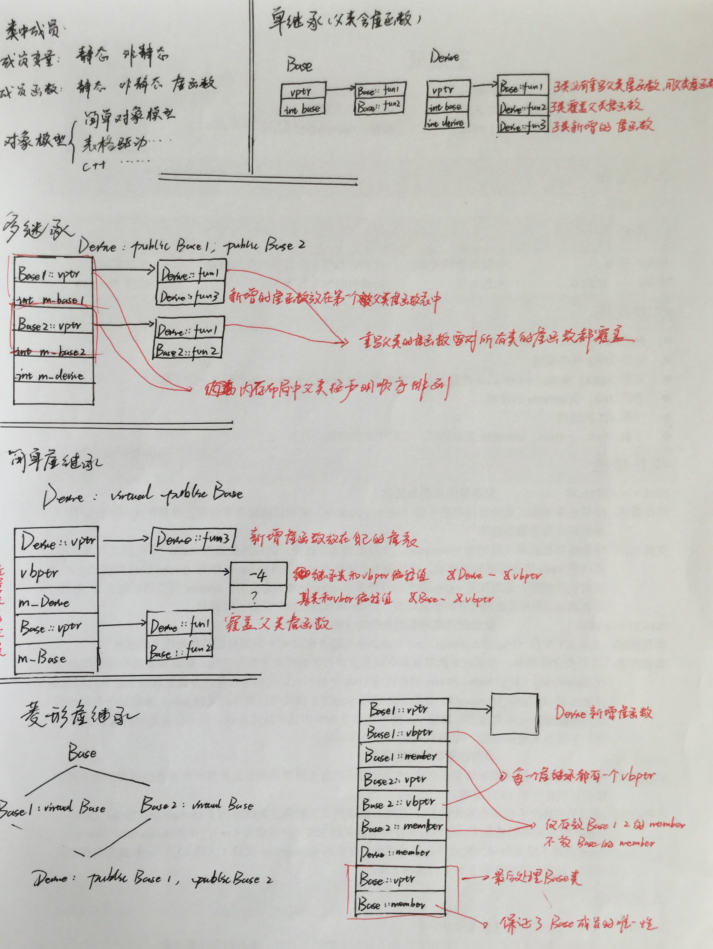 类中成员:
成员变量: 静态 非静态
成员函数: 静态 非静态 虚函数
对象模型
简单对象模型
表格驱动……
C++ ……
单继承(父类含虚函数)
Base
vptr
int base
Base::fun1
Base::fun2
Derive
vptr
int base
int derive
Base::fun1 子类没有重写父类虚函数,
Derive::fun2 子类覆盖父类虚函数
Derive::fun3 子类新增的虚函数
多继承
Derive: public Base1, public Base2
Base1::vptr
int m-base1
Base2::vptr
int m-base2
int m-derive
Derive::fun1
Derive::fun3 新增的虚函数放在第一个父类虚函数表中
Derive::fun1
Base2::fun2
重写父类的虚函数要对所有类的虚函数都覆盖
内存布局中父类按声明顺序排列
简单虚继承
Derive: virtual public Base
Derive::vptr
vbptr
m_Derive
Base::vptr
m_Base
Derive::fun3 新增虚函数放在自己的虚表
-4 继承类和vbptr偏移值 &Derive - &vbptr
? 基类和vbptr偏移值 &Base - &vbptr
Derive::fun1 覆盖父类虚函数
Base::fun2
菱形虚继承
Base
Base1: virtual Base Base2: virtual Base
Derive: public Base1, public Base2
Base1::vptr
Base1::vbptr
Base1::member
Base2::vptr
Base2::vbptr
Base2::member
Derive::member
Base::vptr
Base::member
Derive新增虚函数
每一个虚继承都有一个vbptr
仅存放Base1 2的member
不放Base的member
最后处理Base类
保证了Base成员的唯一性